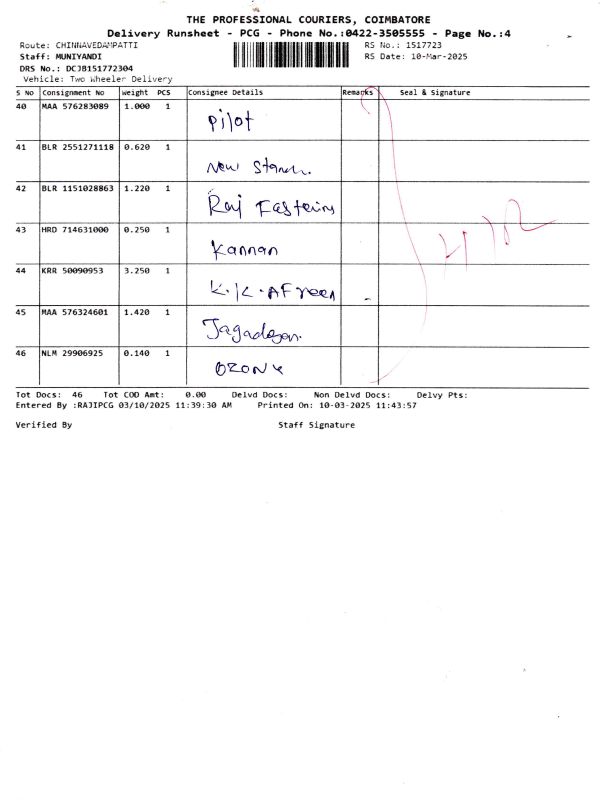 THE PROFESSIONAL COURIERS, COIMBATORE
Delivery Runsheet - PCG - Phone No.:0422-3505555 - Page No.:4
Route: CHINNAVEDAMPATTI RS No.: 1517723
Staff: MUNIYANDI RS Date: 10-Mar-2025
DRS No.: DCJB151772304
Vehicle: Two Wheeler Delivery
S No Consignment No Weight PCS Consignee Details Remarks Seal & Signature
40 MAA 576283089 1.000 1 Pilot
41 BLR 2551271118 0.620 1 New
42 BLR 1151028863 1.220 1 Raj
43 HRD 714631000 0.250 1 Kannan
44 KRR 50090953 3.250 1 K.K.AFreen
45 MAA 576324601 1.420 1
46 NLM 29906925 0.140 1
Tot Docs: 46 Tot COD Amt: 0.00 Delvd Docs: Non Delvd Docs: Delvy Pts:
Entered By :RAJIPCG 03/10/2025 11:39:30 AM Printed On: 10-03-2025 11:43:57
Verified By Staff Signature